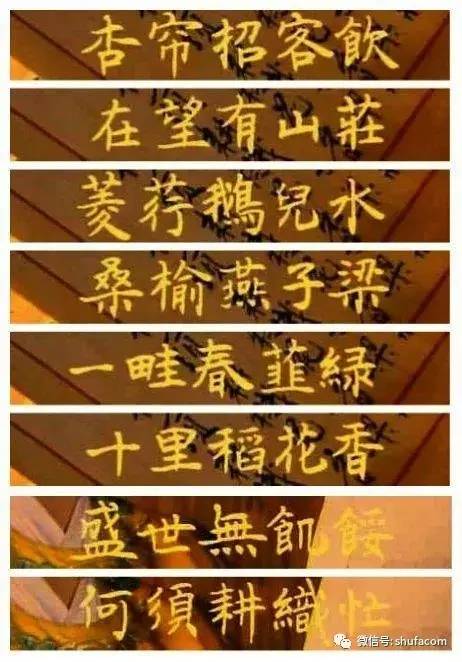 杏帘招客飲
在望有山莊
菱荇鵝兒水
桑榆燕子梁
一畦春韮緑
十里稻花香
盛世無飢餒
何須耕織忙
微信号: shufacom